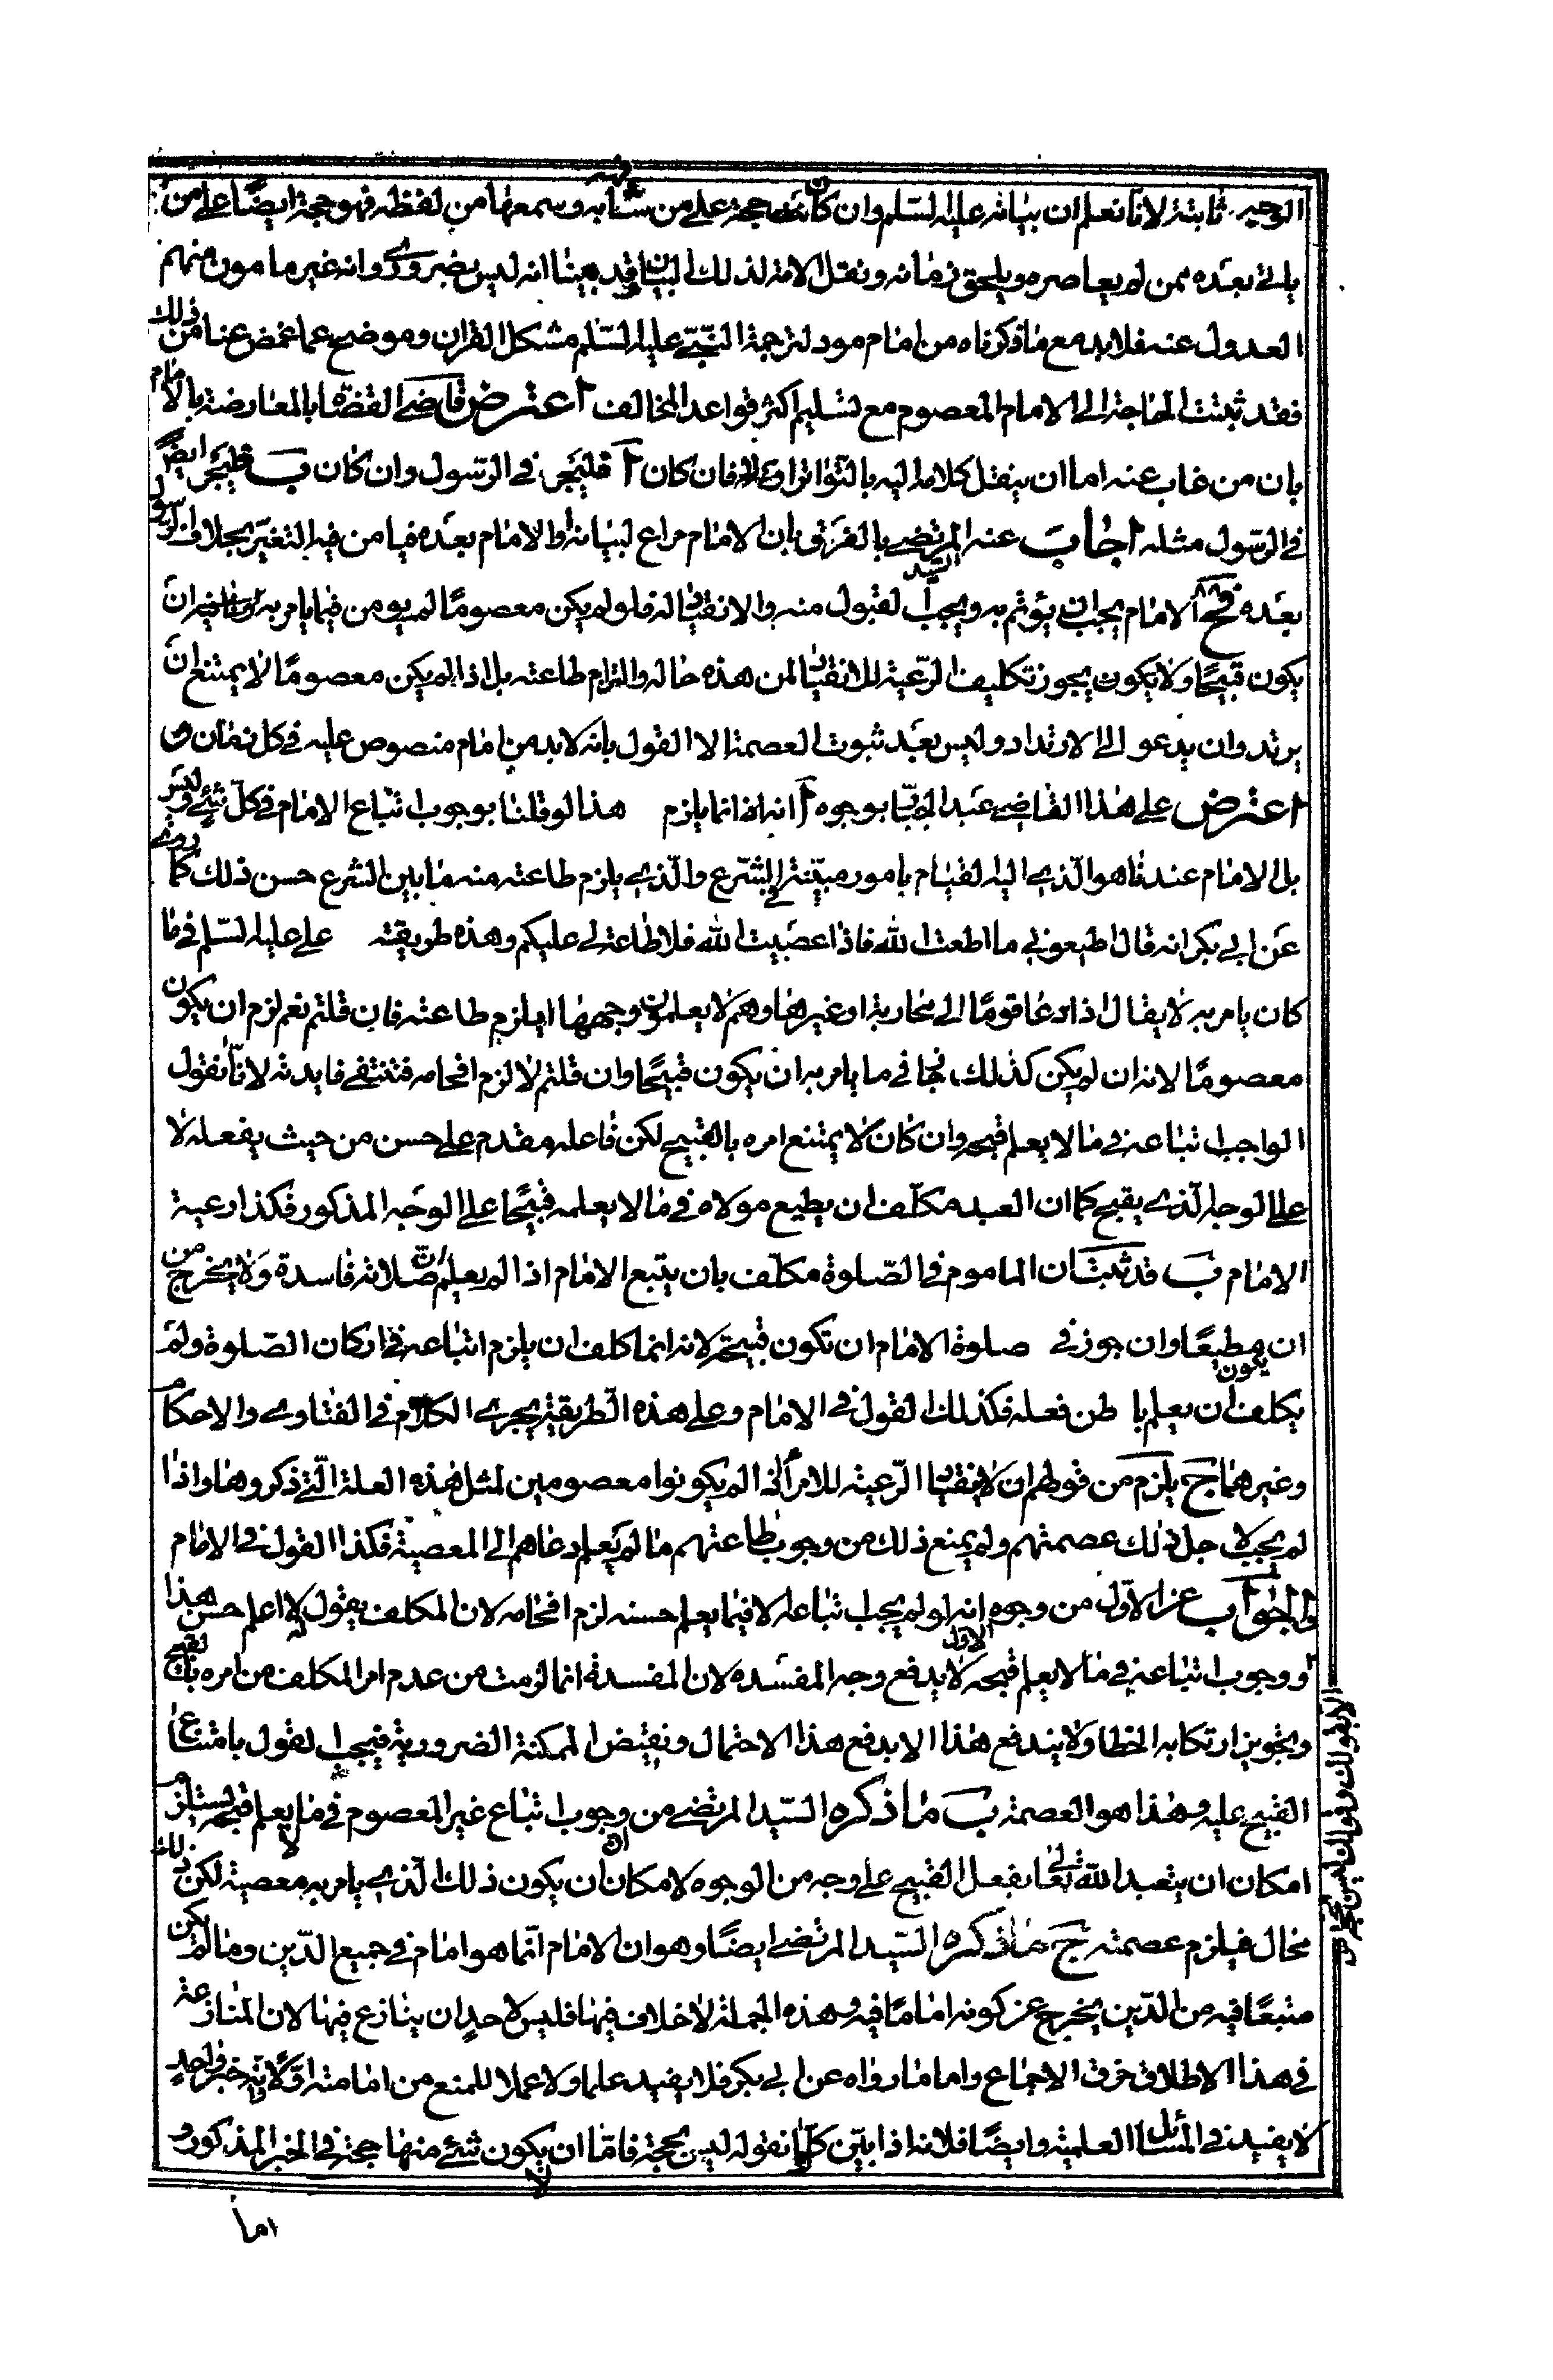 الوجه ثابتة لانا نعلم ان بيانه عليه السلم وان كان حجة على من شافهه به وسمعها من لفظه فهو حجة ايضا على من
ياتى بعده ممن لم يعاصره ويلحق زمانه ونقل الامة لذلك البيان قد بينا انه ليس بضرورى وانه غير مامون منهم
العدول عنه فلا بد مع ما ذكرناه من امام مود لترجمة النبى عليه السلم مشكل القران وموضح عما غمض عنا من ذلك
فقد ثبتت الحاجة الى الامام المعصوم مع تسليم اكثر قواعد المخالف اعترض قاضى القضاة بالمعارضة بالامام
بان من غاب عنه اما ان ينقل كلامه اليه بالتواتر او فان كان ا فليجز فى الرسول وان كان ب فليجز ايضا
فى الرسول مثله اجاب عنه السيد المرتضى بالفرق بان الامام مراع لبيانه والامام بعده فيامن فيه التغير بخلاف الرسول
بعده فح الامام يجب ان يؤتم به ويجب القبول منه والانقياد له فلو لم يكن معصوما لم يومن فيما يامر به ان
يكون قبيحا ولا يكون يجوز تكليف الرعية للانقياد لمن هذه حاله والتزام طاعته بل اذا لم يكن معصوما لا يمتنع ان
يرتد وان يدعو الى الارتداد وليس بعد ثبوت العصمة الا القول بانه لا بد من امام منصوص عليه فى كل زمان
اعترض على هذا القاضى عبد الجبار بوجوه ا انه انما يلزم هذا لو قلنا بوجوب اتباع الامام فى كل شئ وليس
بل الامام عندنا هو الذى اليه القيام بامور مبينة فى الشرع والذى يلزم طاعته منه ما بين الشرع حسن ذلك كما روى
عن ابى بكر انه قال اطيعونى ما اطعت الله فاذا عصيت الله فلا طاعة لى عليكم وهذه طريقته على عليه السلم فى ما
كان يامر به لا يقال اذا دعا قوما الى محاربة او غيرها وهم لا يعلمون وجهها ايلزم طاعته فان قلتم نعم لزم ان يكون
معصوما لانه ان لم يكن كذلك فجا فى ما يامر به ان يكون قبيحا وان قلتم لا لزم افحامه فتنتفى فايدته لانا نقول
الواجب اتباعه فى ما لا يعلم قبحه وان كان لا يمتنع امره بالقبيح لكن فاعله مقدم على حسن من حيث يفعله لا
على الوجه الذى يقبح كما ان العبد مكلف ان يطيع مولاه فى ما لا يعلمه قبيحا على الوجه المذكور فكذا رعية
الامام ب قد ثبت ان الماموم فى الصلوة مكلف بان يتبع الامام اذا لم يعلم ان صلاته فاسدة ولا يخرج من
ان يكون مطيعا وان جوز فى صلوة الامام ان تكون قبيحة لانه انما كلف ان يلزم اتباعه فى اركان الصلوة ولم
يكلف ان يعلم باطن فعله فكذلك القول فى الامام وعلى هذه الطريقة يجرى الكلام فى الفتاوى والاحكام
وغيرهما ج يلزم من قولهم ان لا ينقاد الرعية للامراء اذا لم يكونوا معصومين لمثل هذه العلة التى ذكروها واذا
لم يجب لاجل ذلك عصمتهم ولم يمنع ذلك من وجوب طاعتهم ما لم يعلم دعاهم الى المعصية فكذا القول فى الامام
والجواب عن الاول من وجوه الاول انه لو لم يجب اتباعه الا فيما يعلم حسنه لزم افحامه لان المكلف يقول له لا اعلم حسن هذا
ووجوب اتباعه فى ما لا يعلم قبحه لا يدفع وجه المفسده لان المفسدة انما لزمت من عدم امن المكلف من امره بالقبيح
وتجويز ارتكابه الخطا ولا يندفع هذا الا بدفع هذا الاحتمال ونقيض الممكنة الضرورية فيجب القول بامتناع
القبيح عليه وهذا هو العصمة ب ما ذكره السيد المرتضى من وجوب اتباع غير المعصوم فى ما لا يعلم قبحه يستلزم
امكان ان يتعبد الله تعالى بفعل القبيح على وجه من الوجوه لامكان ان يكون ذلك الذى يامر به معصية لكن ذلك
محال فيلزم عصمته ج ما ذكره السيد المرتضى ايضا وهو ان الامام انما هو امام فى جميع الدين وما لم يكن
متبعا فيه من الدين يخرج عن كونه اماما فيه وهذه الجملة لا خلاف فيها فليس لاحد ان ينازع فيها لان المنازعة
فى هذا الاطلاق خرق الاجماع واما ما رواه عن ابى بكر فلا يفيد علما ولا عملا للمنع من امامته اولا ولانه خبر واحد
لا يفيد فى المسائل العلمية وايضا فلانه اذا بين كلما نقوله ليس بحجة فاما ان لا يكون شئ منها حجة فى الخبر المذكور و
اما